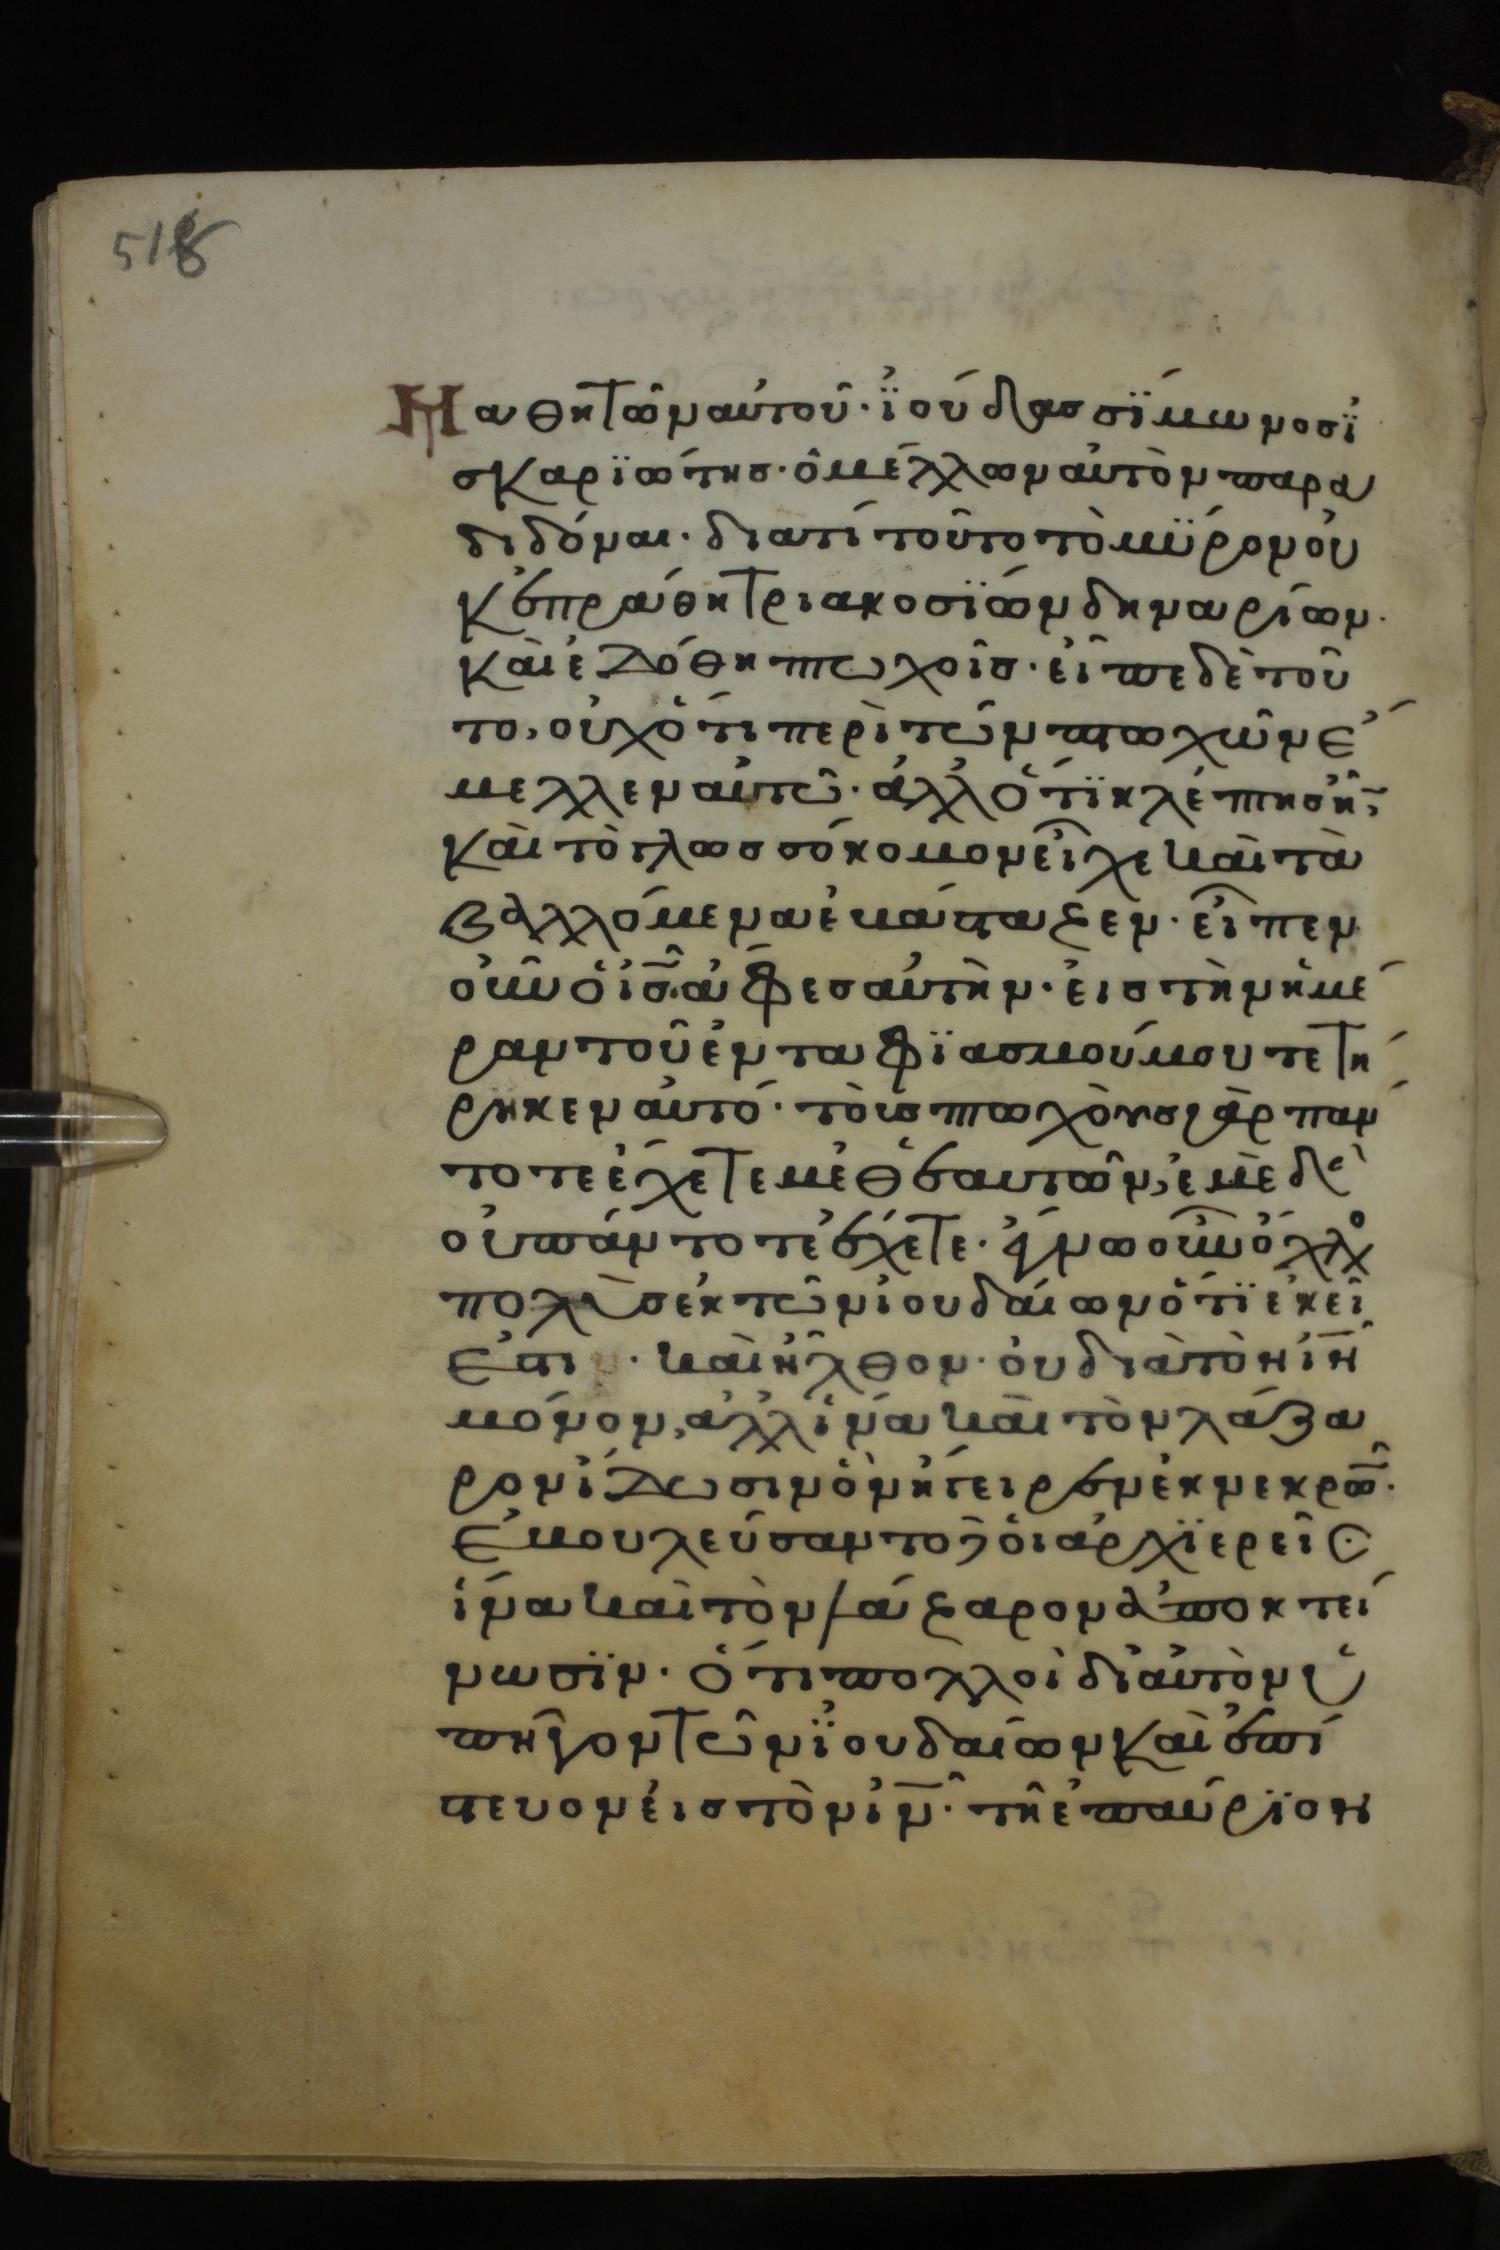 518
Μαθητῶν αὐτοῦ· ἰούδας σϊμωνος ϊ
σκαρϊώτης· ὁ μέλλων αὐτὸν παρα
διδόναι· διατί τοῦτο τὸ μϋρον οὐ
κ ἐπράθη τριακοσϊων δηναρίων·
καὶ ἐδόθη πτωχοῖς· εἶπε δὲ τοῦ
το, οὐχ ὅτι περὶ τῶν πτωχῶν ἔ
μελλεν αὐτῶ· ἀλλ ὅτϊ κλέπτης ἦν,
καὶ τὸ γλωσσόκομον εἶχε καὶ τὰ
βαλλόμενα ἐβάσταζεν· εἶπεν
οὖν ὁ ἰς· ἄφες αὐτὴν· εἰς τὴν ἡμέ
ραν τοῦ ἐνταφϊασμού μου τετή
ρηκεν αὐτό· τοὺς πτωχοὺς γὰρ πάν
τοτε ἔχετε μεθ ἑαυτῶν, ἐμὲ δὲ
οὐ πάντοτε ἔχετε· ἔγνω οὖν ὄχλο
πολὺς ἐκ τῶν ἰουδαίων ὅτϊ ἐκεῖ
ἐστι · καὶ ἦλθον· οὐ διὰ τὸν ἰν
μόνον, ἀλλ ἵνα καὶ τὸν λάζα
ρον ἴδωσιν ὃν ἤγειρεν ἐκ νεκρῶ·
ἐβουλεύσαντο δὲ οἱ ἀρχϊερεῖς
ἵνα καὶ τὸν λάζαρον ἀποκτεί
νωσϊν· ὅτι πολλοὶ δι αὐτὸν ὑ
πῆγον τῶν ϊουδαίων καὶ ἐπί
στευον εἰς τὸν ἰν· τῆ ἐπαύρϊον